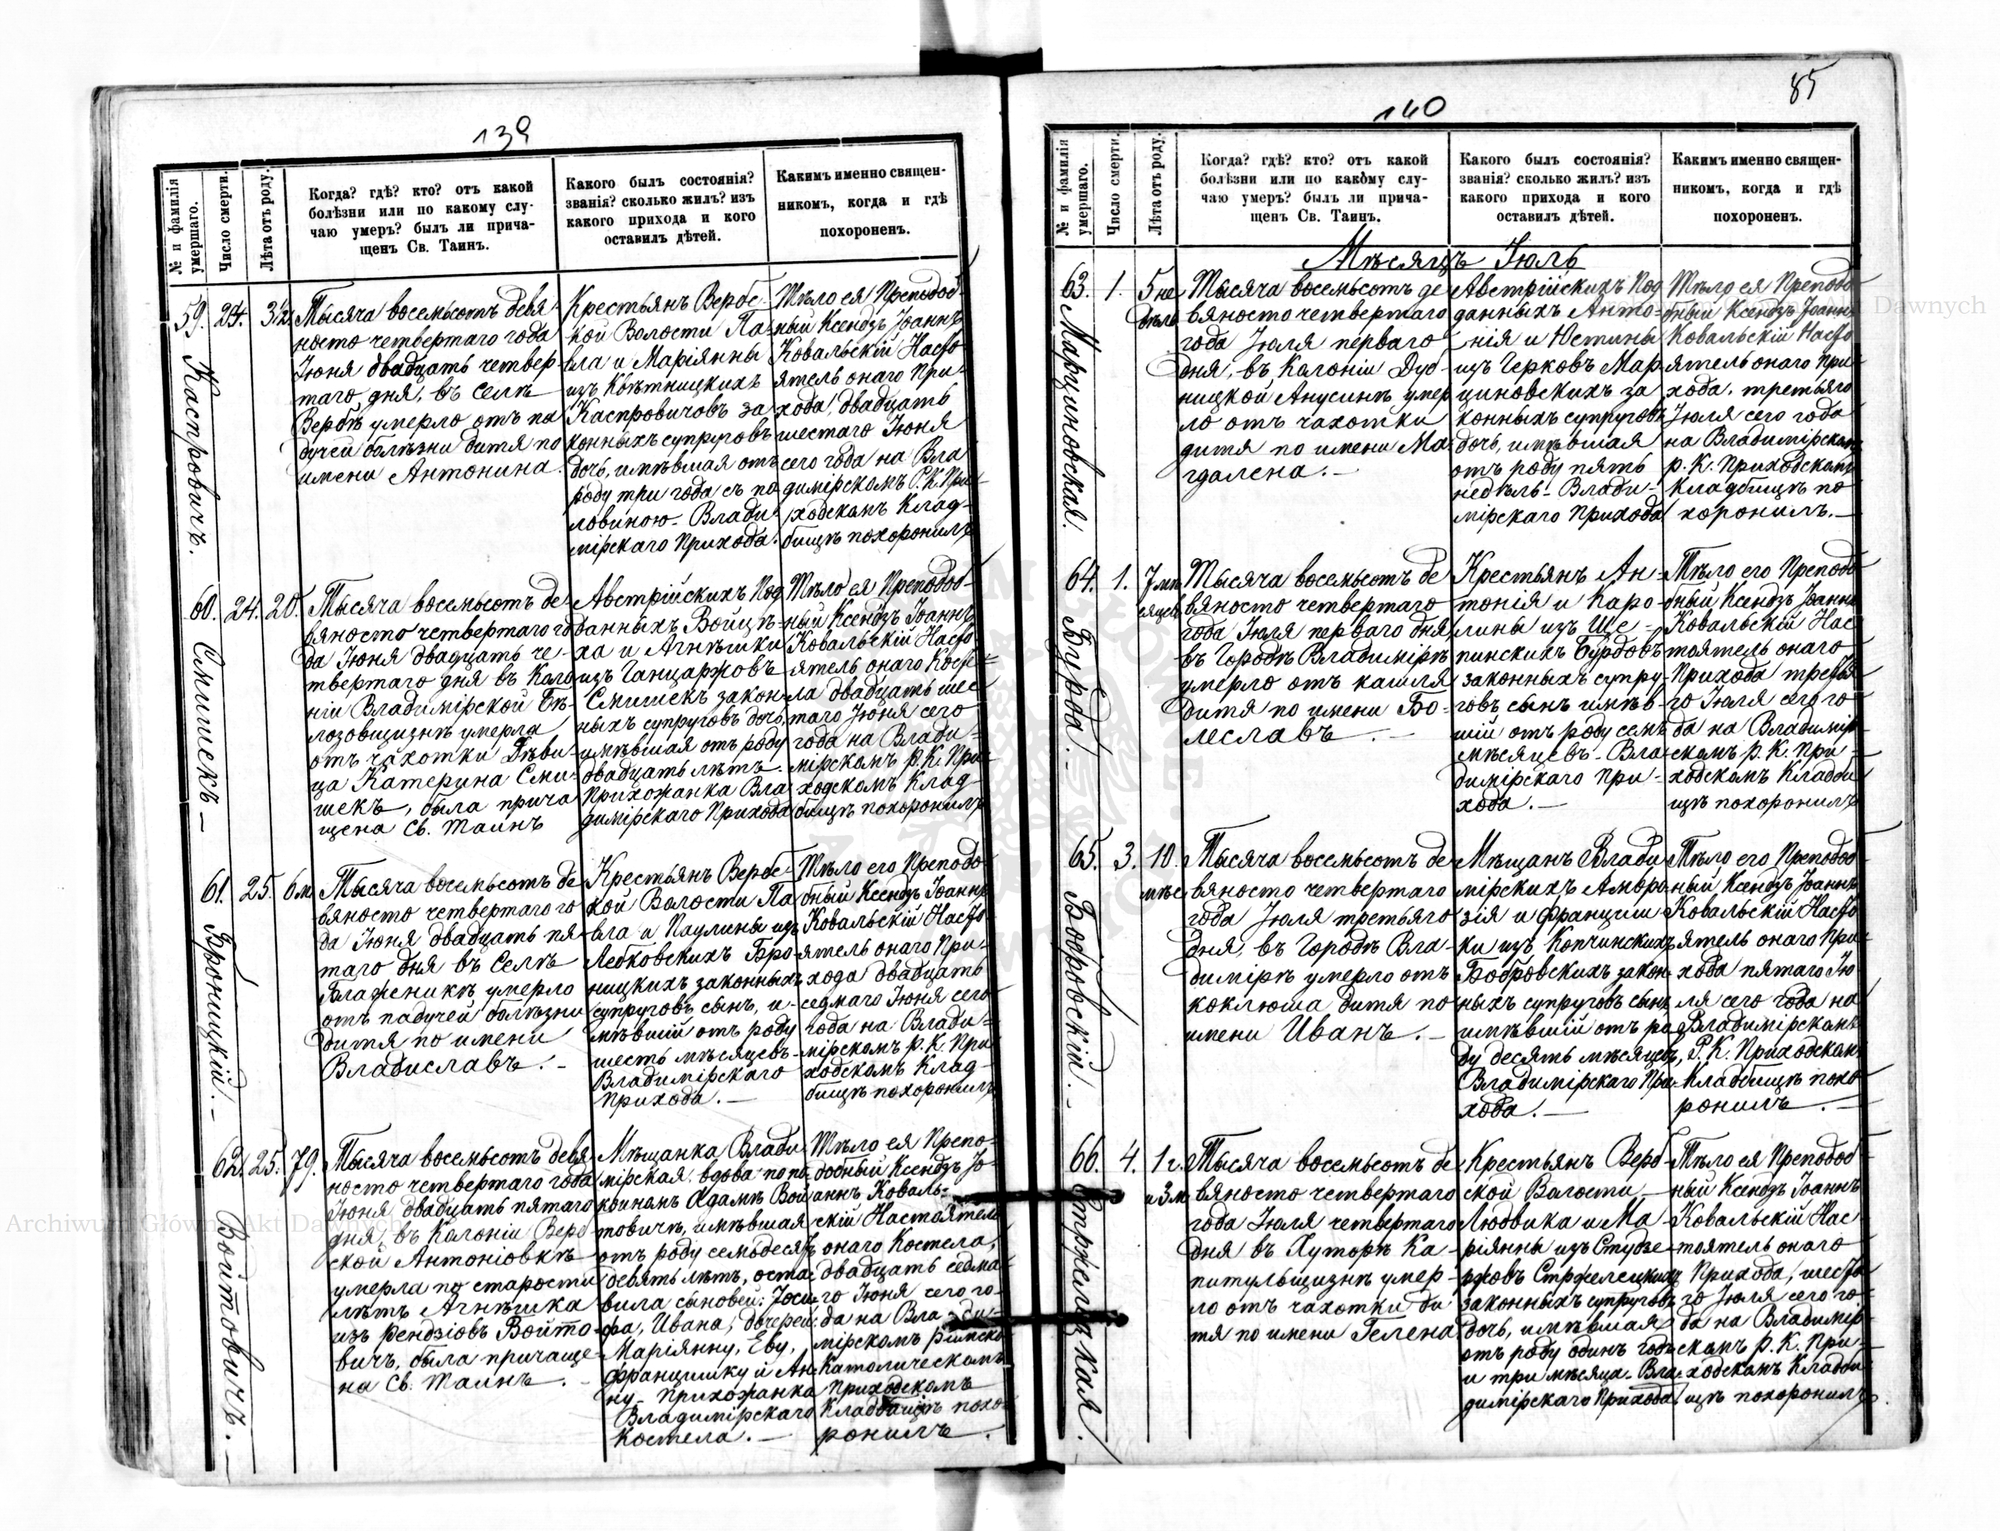 139
№ и фамилія умершаго.
Число смерти.
Лѣта отъ роду.
Когда? гдѣ? кто? отъ какой
болѣзни или по какому слу-
чаю умеръ? былъ ли прича-
щенъ Св. Таинъ.
Какого былъ состоянія?
званія? сколько жилъ? изъ
какого прихода и кого
оставилъ дѣтей.
Какимъ именно священ-
никомъ, когда и гдѣ
похороненъ.
59. Каспровичъ.
24.
3½
Тысяча восемьсотъ девя-
носто четвертаго года
Іюня двадцать четвер-
таго дня, въ селѣ
Вербѣ умерло отъ па
дучей болѣзни дитя по
имени Антонина.
Крестьянъ Вербс-
кой Волости Па
вла и Маріянны
изъ
Каспровичовъ за
конныхъ супруговъ
дочь, имѣвшая отъ
роду три года съ по
ловиною. Влади
мірскаго Прихода.
Тѣло ея Преподоб-
ный Ксендзъ Іоаннъ
Ковальскій Насто
ятель онаго При-
хода, двадцать
шестаго Іюня
сего года на Вла
димірскомъ Р.К. При
ходскомъ Клад-
бищѣ похоронилъ
60. Смишекъ –
24.
20.
Тысяча восемьсотъ де
вяносто четвертаго го
да Іюня двадцать че-
твертаго дня въ Коло
ніи Владимірской Бѣ-
лозовщизнѣ умерла
отъ чахотки Дѣви-
ца Катерина Сми-
шекъ, была прича
щена Св. Таинъ
Австрійскихъ Под
данныхъ Войцѣ-
ха и Агнѣшки
изъ Ганцаржовъ
Смишекъ закон-
ныхъ супруговъ дочь
имѣвшая отъ роду
двадцать лѣтъ.
Прихожанка Вла
димірскаго Прихода
Тѣло ея Преподоб-
ный Ксендзъ Іоаннъ
Ковальскій Насто
ятель онаго Косте-
ла двадцать шес
таго Іюня сего
года на Влади-
мірскомъ Р.К. При
ходскомъ Клад-
бищѣ похоронилъ
61. Броницкій. –
25.
6 м.
Тысяча восемьсотъ де
вяносто четвертаго го
да Іюня двадцать пя-
таго дня въ Селѣ
Блаженикѣ умерло
отъ падучей болѣзни
дитя по имени
Владиславъ. –
Крестьянъ Вербс-
кой Волости Па
вла и Паулины изъ
Лебковскихъ Бро
ницкихъ законныхъ
супруговъ сынъ, и-
мѣвшій отъ роду
шесть мѣсяцевъ
Владимірскаго
Прихода. –
Тѣло его Преподо
бный Ксендзъ Іоаннъ
Ковальскій Насто
ятель онаго При-
хода двадцать
седмаго Іюня сего
года на Влади-
мірскомъ Р.К. При
ходскомъ Клад-
бищѣ похоронилъ
62. Войтовичъ. –
25.
79.
Тысяча восемьсотъ девя
носто четвертаго года
Іюня двадцать пятаго
дня, въ Колоніи Верб
ской Антоніовкѣ
умерла по старости
лѣтъ Агнѣшка
изъ Рендзіовъ Войто-
вичъ, была причаще-
на Св. Таинъ. –
Мѣщанка Влади
мірская вдова по по
койномъ Адамѣ Вой
товичѣ, имѣвшая
отъ роду семьдесят
девять лѣтъ, оста
вила сыновей: Іоси-
фа, Ивана, дочерей:
Маріянну, Еву,
Францишку и Ан
ну. Прихожанка
Владимірскаго
Костела. –
Тѣло ея Препо-
добный Ксендзъ Іо-
аннъ Коваль-
скій Настоятель
онаго Костела,
двадцать седма-
го Іюня сего го-
да на Влади-
мірскомъ Римско
Католическомъ
Приходскомъ
Кладбищѣ похо
ронилъ.
85
140
№ и фамилія умершаго.
Число смерти.
Лѣта отъ роду.
Когда? гдѣ? кто? отъ какой
болѣзни или по какому слу-
чаю умеръ? былъ ли прича-
щенъ Св. Таинъ.
Какого былъ состоянія?
званія? сколько жилъ? изъ
какого прихода и кого
оставилъ дѣтей.
Какимъ именно священ-
никомъ, когда и гдѣ
похороненъ.
Мѣсяцъ Іюль
63. Марциновская.
1.
5 не
дѣль
Тысяча восемьсотъ де
вяносто четвертаго
года Іюля перваго
дня, въ Колоніи Дуб-
ницкой Анусинѣ умер
ло отъ чахотки
дитя по имени Ма
гдалена. –
Австрійскихъ Под
данныхъ Анто-
нія и Юстины
изъ Черковъ Мар
циновскихъ за
конныхъ супруговъ
дочь, имѣвшая
отъ роду пять
недѣль. Влади-
мірскаго Прихода
Тѣло ея Преподо
бный Ксендзъ Іоаннъ
Ковальскій Насто
ятель онаго При-
хода, третьяго
Іюля сего года
на Владимірскомъ
Р.К. Приходскомъ
Кладбищѣ по
хоронилъ. –
64. Бурда. –
1.
7 мѣ
сяцев
Тысяча восемьсотъ де
вяносто четвертаго
года Іюля перваго дня
въ Городѣ Владимірѣ
умерло отъ кашля
дитя по имени Бо-
леславъ. –
Крестьянъ Ан-
тонія и Каро
лины изъ Ще-
пинскихъ Бурдовъ
законныхъ супру
говъ сынъ имѣв-
шій отъ роду семь
мѣсяцевъ. Вла-
димірскаго При-
хода. –
Тѣло его Преподо
бный Ксендзъ Іоаннъ
Ковальскій Нас
тоятель онаго
Прихода третья
го Іюля сего го
да на Владимір-
скомъ Р.К. При-
ходскомъ Кладби
щѣ похоронилъ
65. Бобровскій. –
3.
10.
мѣс
Тысяча восемьсотъ де
вяносто четвертаго
года Іюля третьяго
дня, въ Городѣ Вла-
димірѣ умерло отъ
коклюша дитя по
имени Иванъ. –
Мѣщанъ Влади
мірскихъ Амбро
зія и Францишки
изъ Копчинскихъ
Бобровскихъ закон-
ныхъ супруговъ сынъ
имѣвшій отъ ро
ду десять мѣсяцевъ,
Владимірскаго При
хода. –
Тѣло его Преподоб
ный Ксендзъ Іоаннъ
Ковальскій Насто
ятель онаго При
хода пятаго Ію
ля сего года на
Владимірскомъ
Р.К. Приходскомъ
Кладбищѣ похо
ронилъ. –
66. Стржелецкая.
4.
1 г.
и 3 м.
Тысяча восемьсотъ де
вяносто четвертаго
года Іюля четвертаго
дня въ Хуторѣ Ка-
питульщизнѣ умер-
ло отъ чахотки ди
тя по имени Гелена
Крестьянъ Верб
ской Волости
Людвика и Ма-
ріянны изъ Студзе-
ржовъ Стржелецкихъ
законныхъ супруговъ
дочь, имѣвшая
отъ роду одинъ годъ
и три мѣсяца. Вла
димірскаго Прихода
Тѣло ея Преподоб
ный Ксендзъ Іоаннъ
Ковальскій Нас
тоятель онаго
Прихода, шеста
го Іюля сего го-
да на Владимір-
скомъ Р.К. При-
ходскомъ Кладби
щѣ похоронилъ
Archiwum Główne Akt Dawnych
Archiwum Główne Akt Dawnych